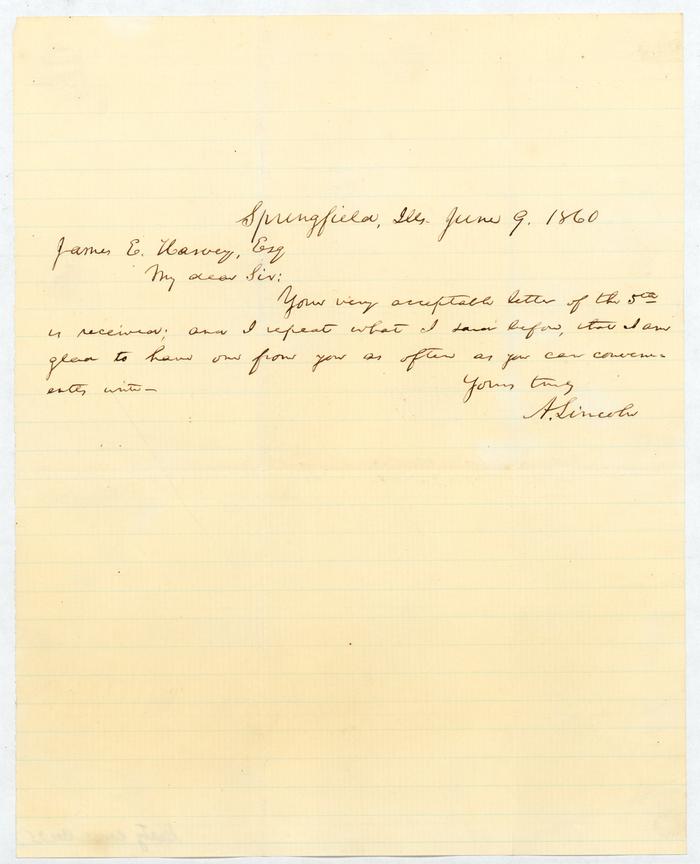 Springfield, Ills. June 9. 1860
James E. Harvey, Esq
My dear Sir:
Your very acceptable letter of the 5th
is received; and I repeat what I said before, that I am
glad to have one from you as often as you can conveni-
ently write—
Yours truly
A. Lincoln